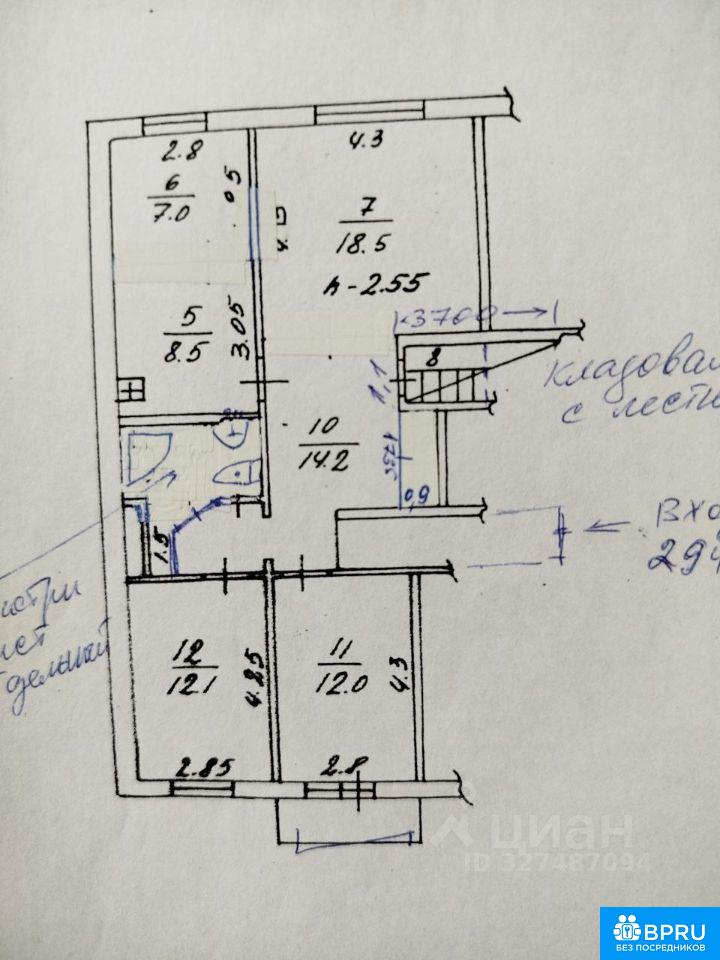 2.8
4.3
6
7.0
0.5
7
18.5
h-2.55
3700
5
8.5
3.05
8
1,1
с лестн
10
14.2
1735
0,9
Вхо
1.5
12
12.1
4.25
11
12.0
4.3
2.85
2.8
циан
ID 327487094
BPRU
БЕЗ ПОСРЕДНИКОВ